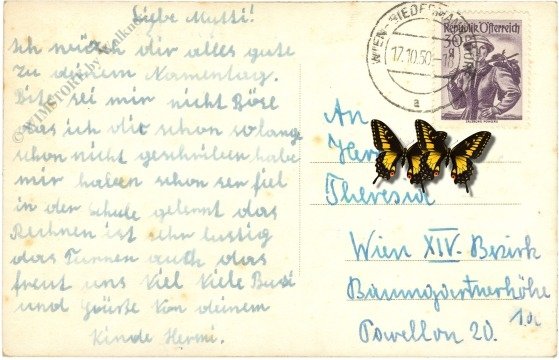 Liebe Mutti!
Ich wünsch dir alles gute
zu deinem Namenstag.
Bitte sei mir nicht Böse
das ich dir schon so lange
schon nicht geschriben habe
mir haben schon ser fiel
in der Schule gelernt das
Rechnen ist sehr lustig
das Turnen auch das
freut uns Viel Viele Busi
und Grüße von deinem
Kinde Hermi.
WIEN-BIEDERMANNSDORF
17.10.50.-18
a
Republik Österreich
30 g
An
Theresia
Wien XIV. Bezirk
Baumgartnerhöhe
1a
Pawellon 20.
© WIMSTORE by Walkn